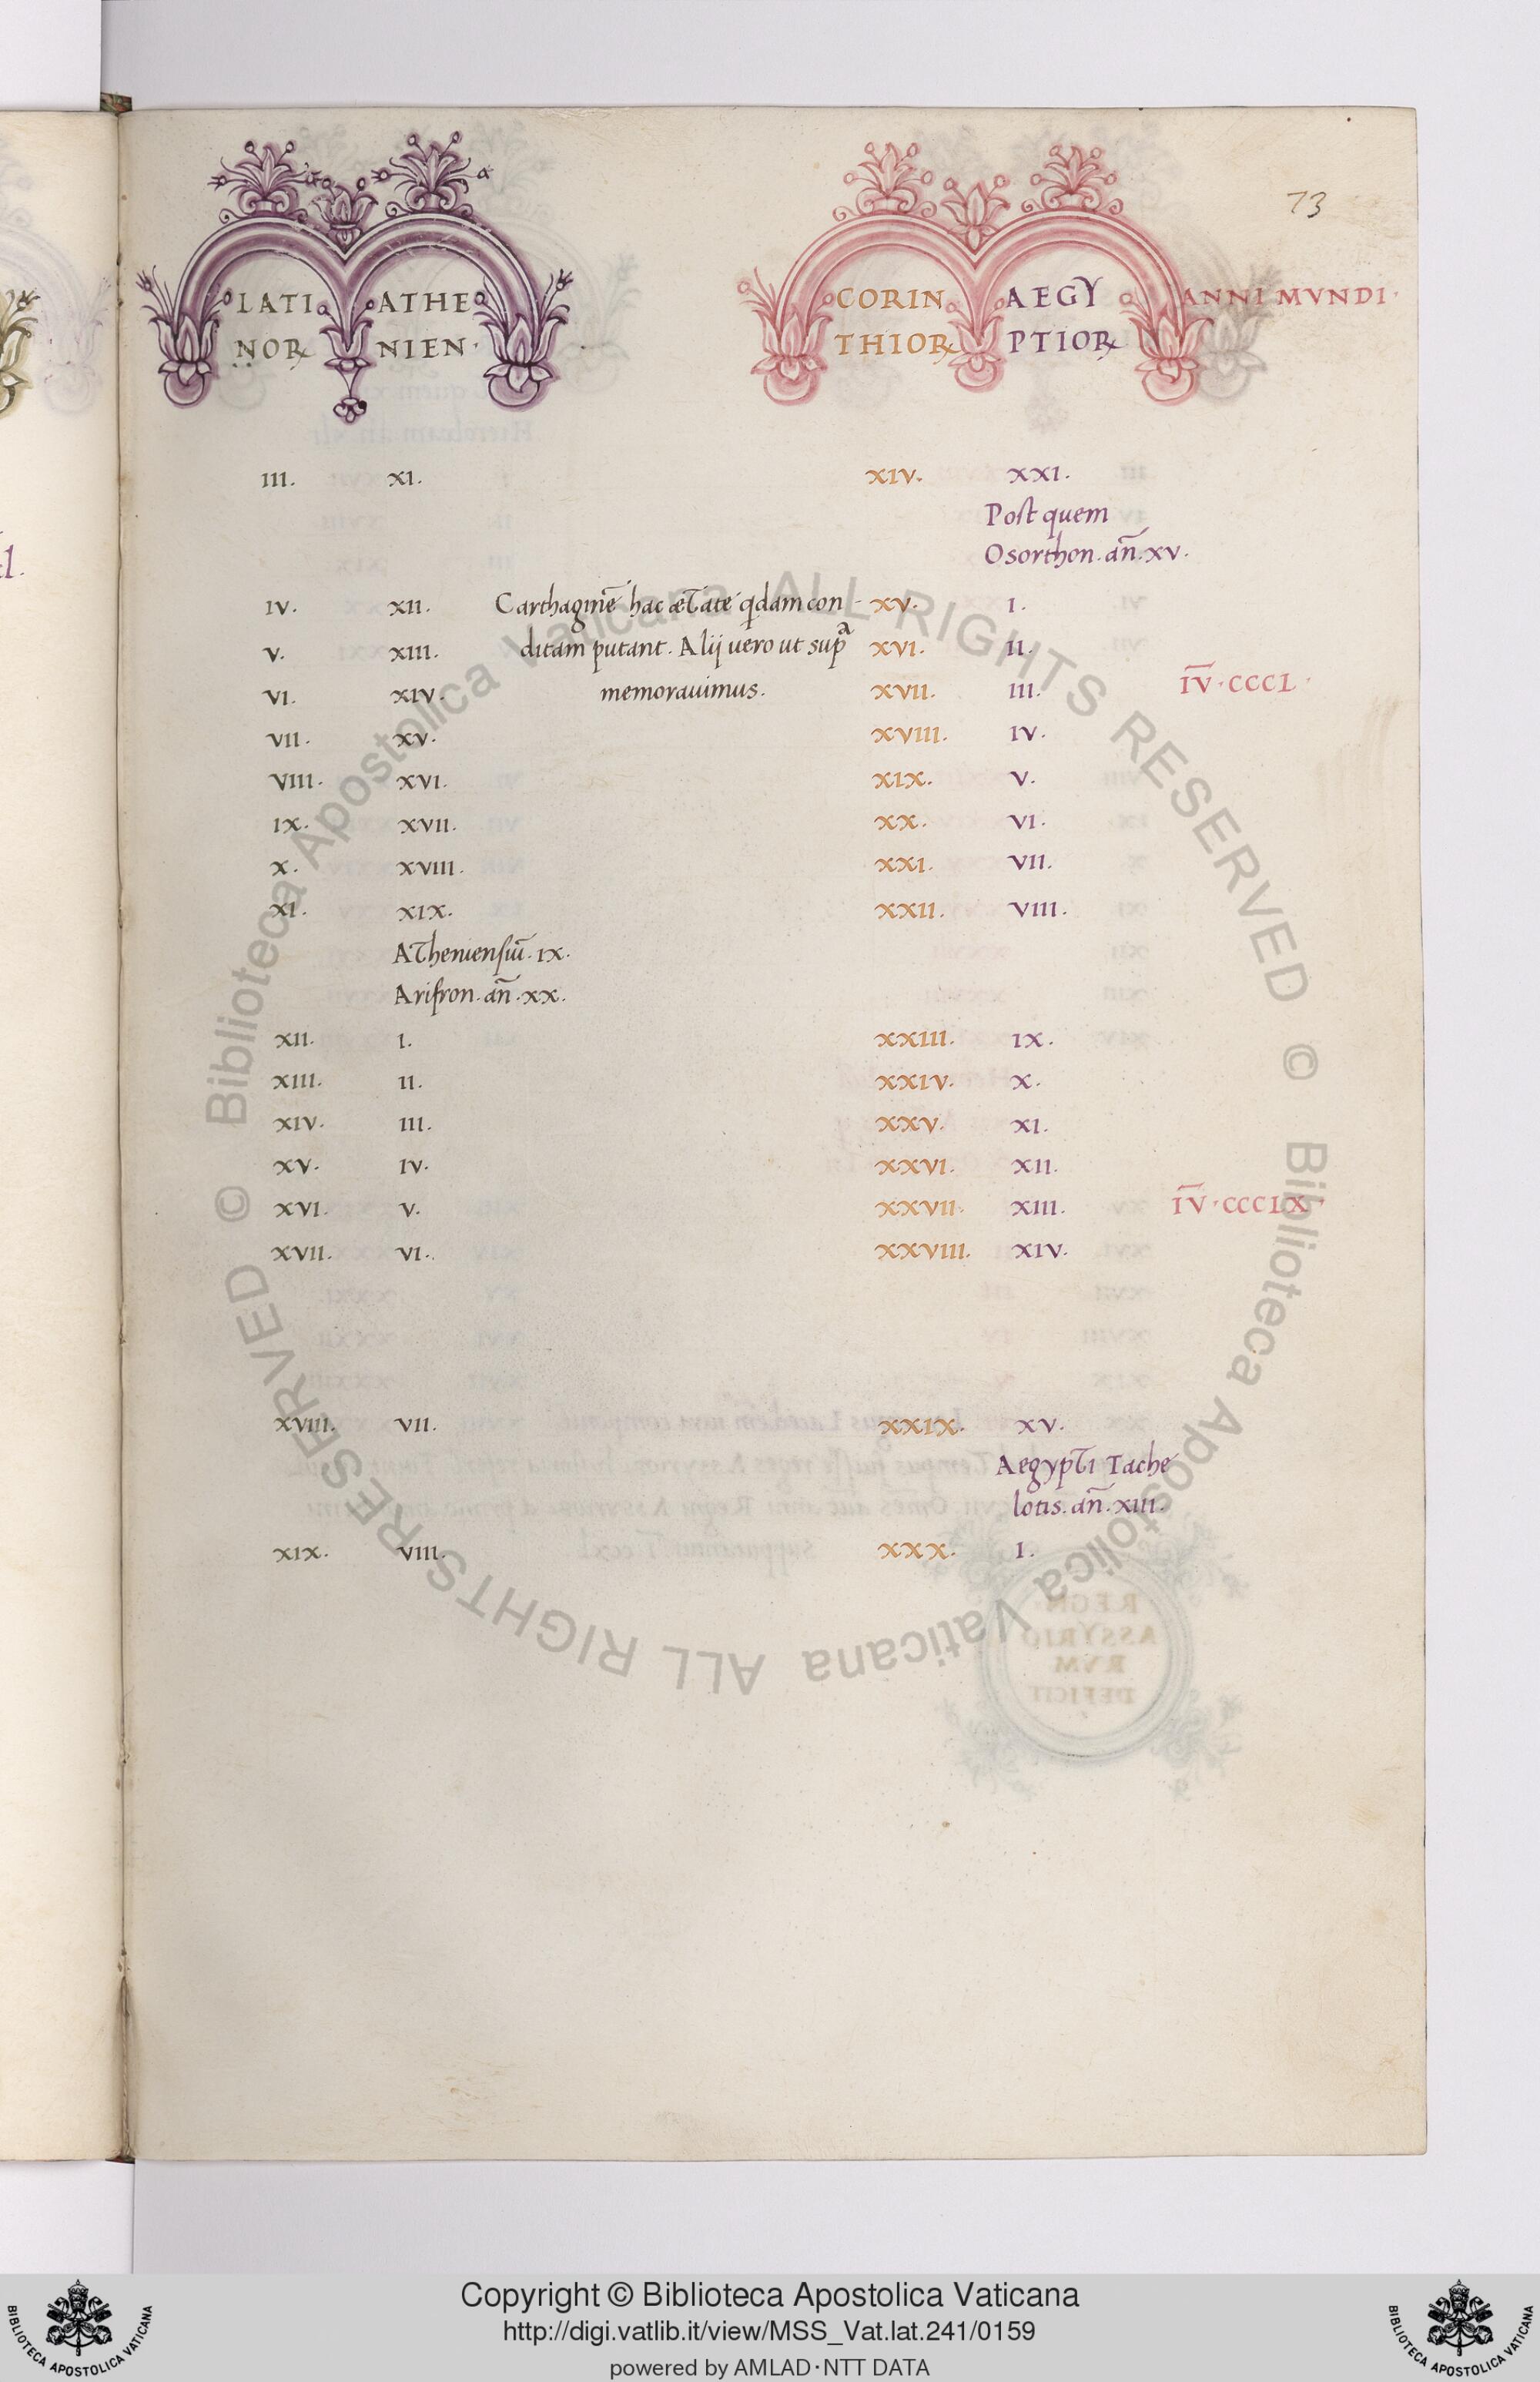 73
LATI ATHE CORIN AEGY ANNI MVNDI·
NOꝜ NIEN· THIOꝜ PTIOꝜ
III. XI. XIV. XXI.
Post quem
Osorthon. an̄. xv.
IV. XII. Carthaginē hac ætate q̇dam con- XV. I.
V. XIII. ditam putant. Alij uero ut supᵃ XVI. II.
VI. XIV. memorauimus. XVII. III. I̅V̅·CCCL·
VII. XV. XVIII. IV.
VIII. XVI. XIX. V.
IX. XVII. XX. VI.
X. XVIII. XXI. VII.
XI. XIX. XXII. VIII.
Atheniensiū. IX.
Arifron. an̄. xx.
XII. I. XXIII. IX.
XIII. II. XXIV. X.
XIV. III. XXV. XI.
XV. IV. XXVI. XII.
XVI. V. XXVII. XIII. I̅V̅·CCCLX·
XVII. VI. XXVIII. XIV.
XVIII. VII. XXIX. XV.
Aegypti Tache
lotis. an̄. XIII.
XIX. VIII. XXX. I.
© Biblioteca Apostolica Vaticana ALL RIGHTS RESERVED © Biblioteca Apostolica Vaticana ALL RIGHTS RESERVED
Copyright © Biblioteca Apostolica Vaticana
http://digi.vatlib.it/view/MSS_Vat.lat.241/0159
powered by AMLAD·NTT DATA
BIBLIOTECA APOSTOLICA VATICANA
BIBLIOTECA APOSTOLICA VATICANA